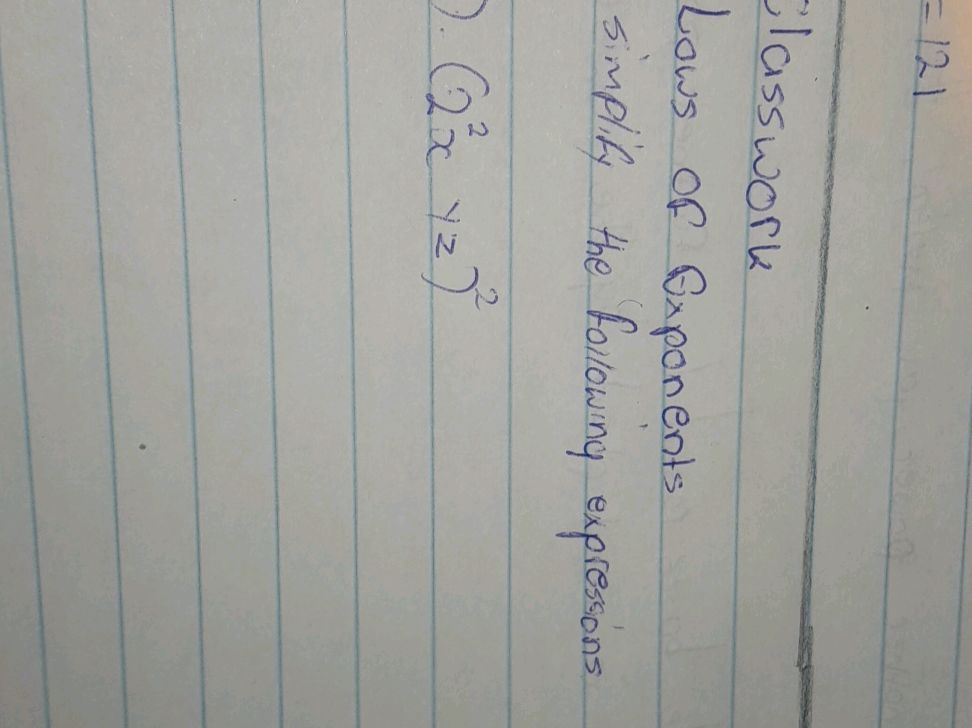 = 121
Classwork
Laws of Exponents
simplify the following expressions
). (2²x yz)²